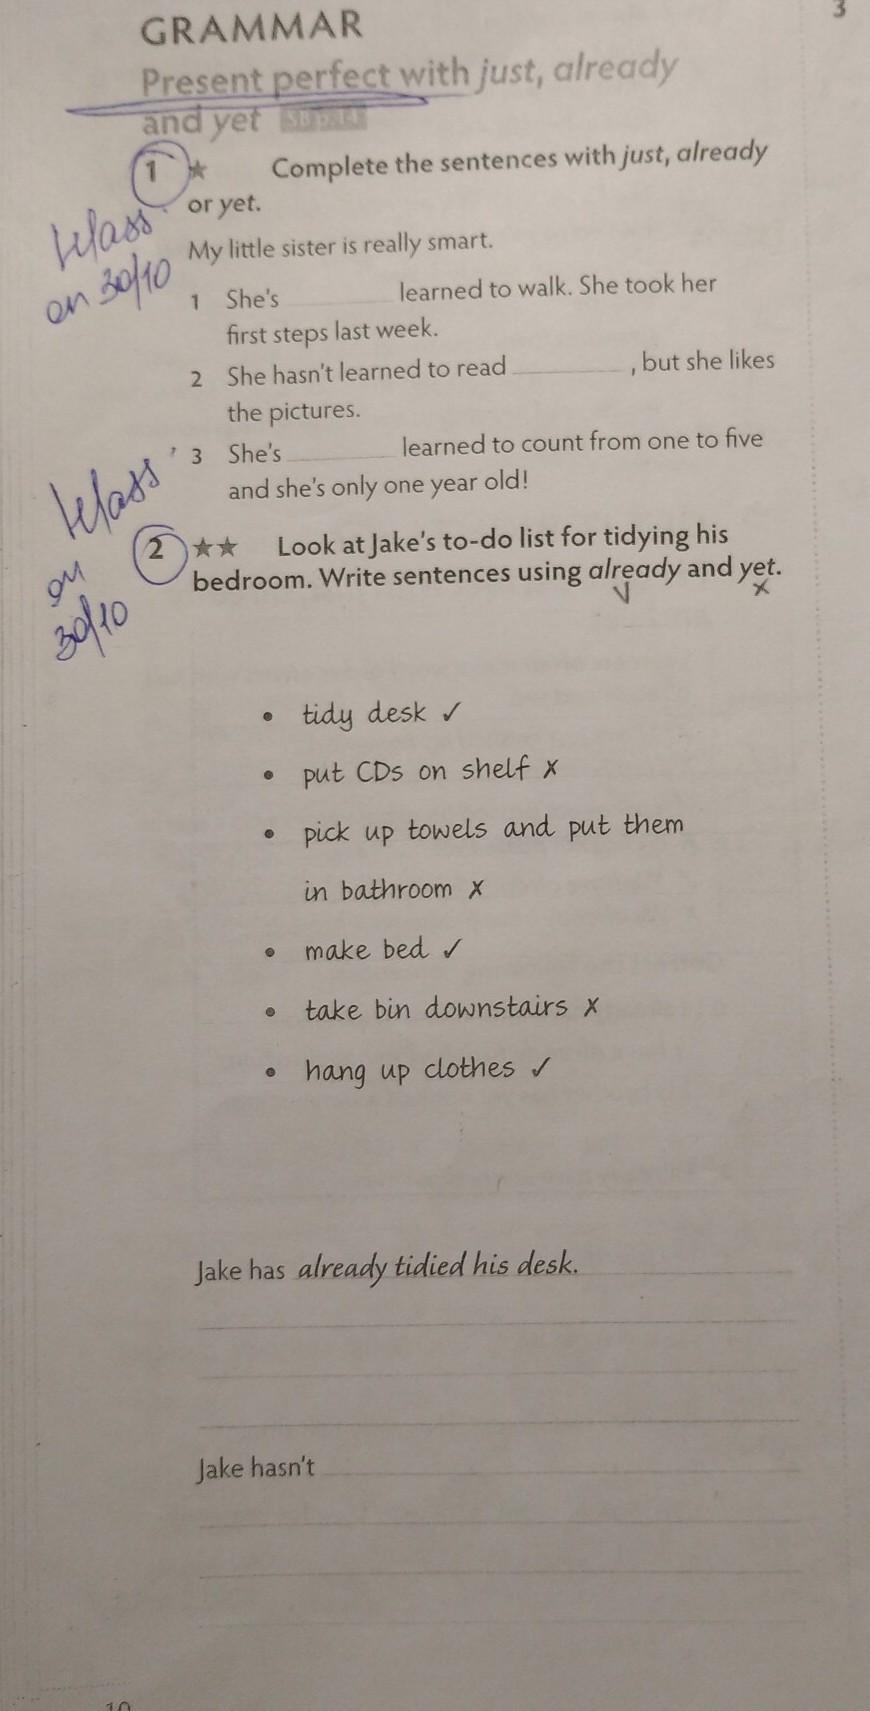 3
GRAMMAR
Present perfect with just, already
and yet SB p.14
1 ★ Complete the sentences with just, already
or yet.
My little sister is really smart.
1 She's ________ learned to walk. She took her
first steps last week.
2 She hasn't learned to read ________, but she likes
the pictures.
3 She's ________ learned to count from one to five
and she's only one year old!
on 30/10
2 ★★ Look at Jake's to-do list for tidying his
bedroom. Write sentences using already and yet.
✓ x
on
30/10
• tidy desk ✓
• put CDs on shelf ✗
• pick up towels and put them
in bathroom ✗
• make bed ✓
• take bin downstairs ✗
• hang up clothes ✓
Jake has already tidied his desk.
Jake hasn't
10